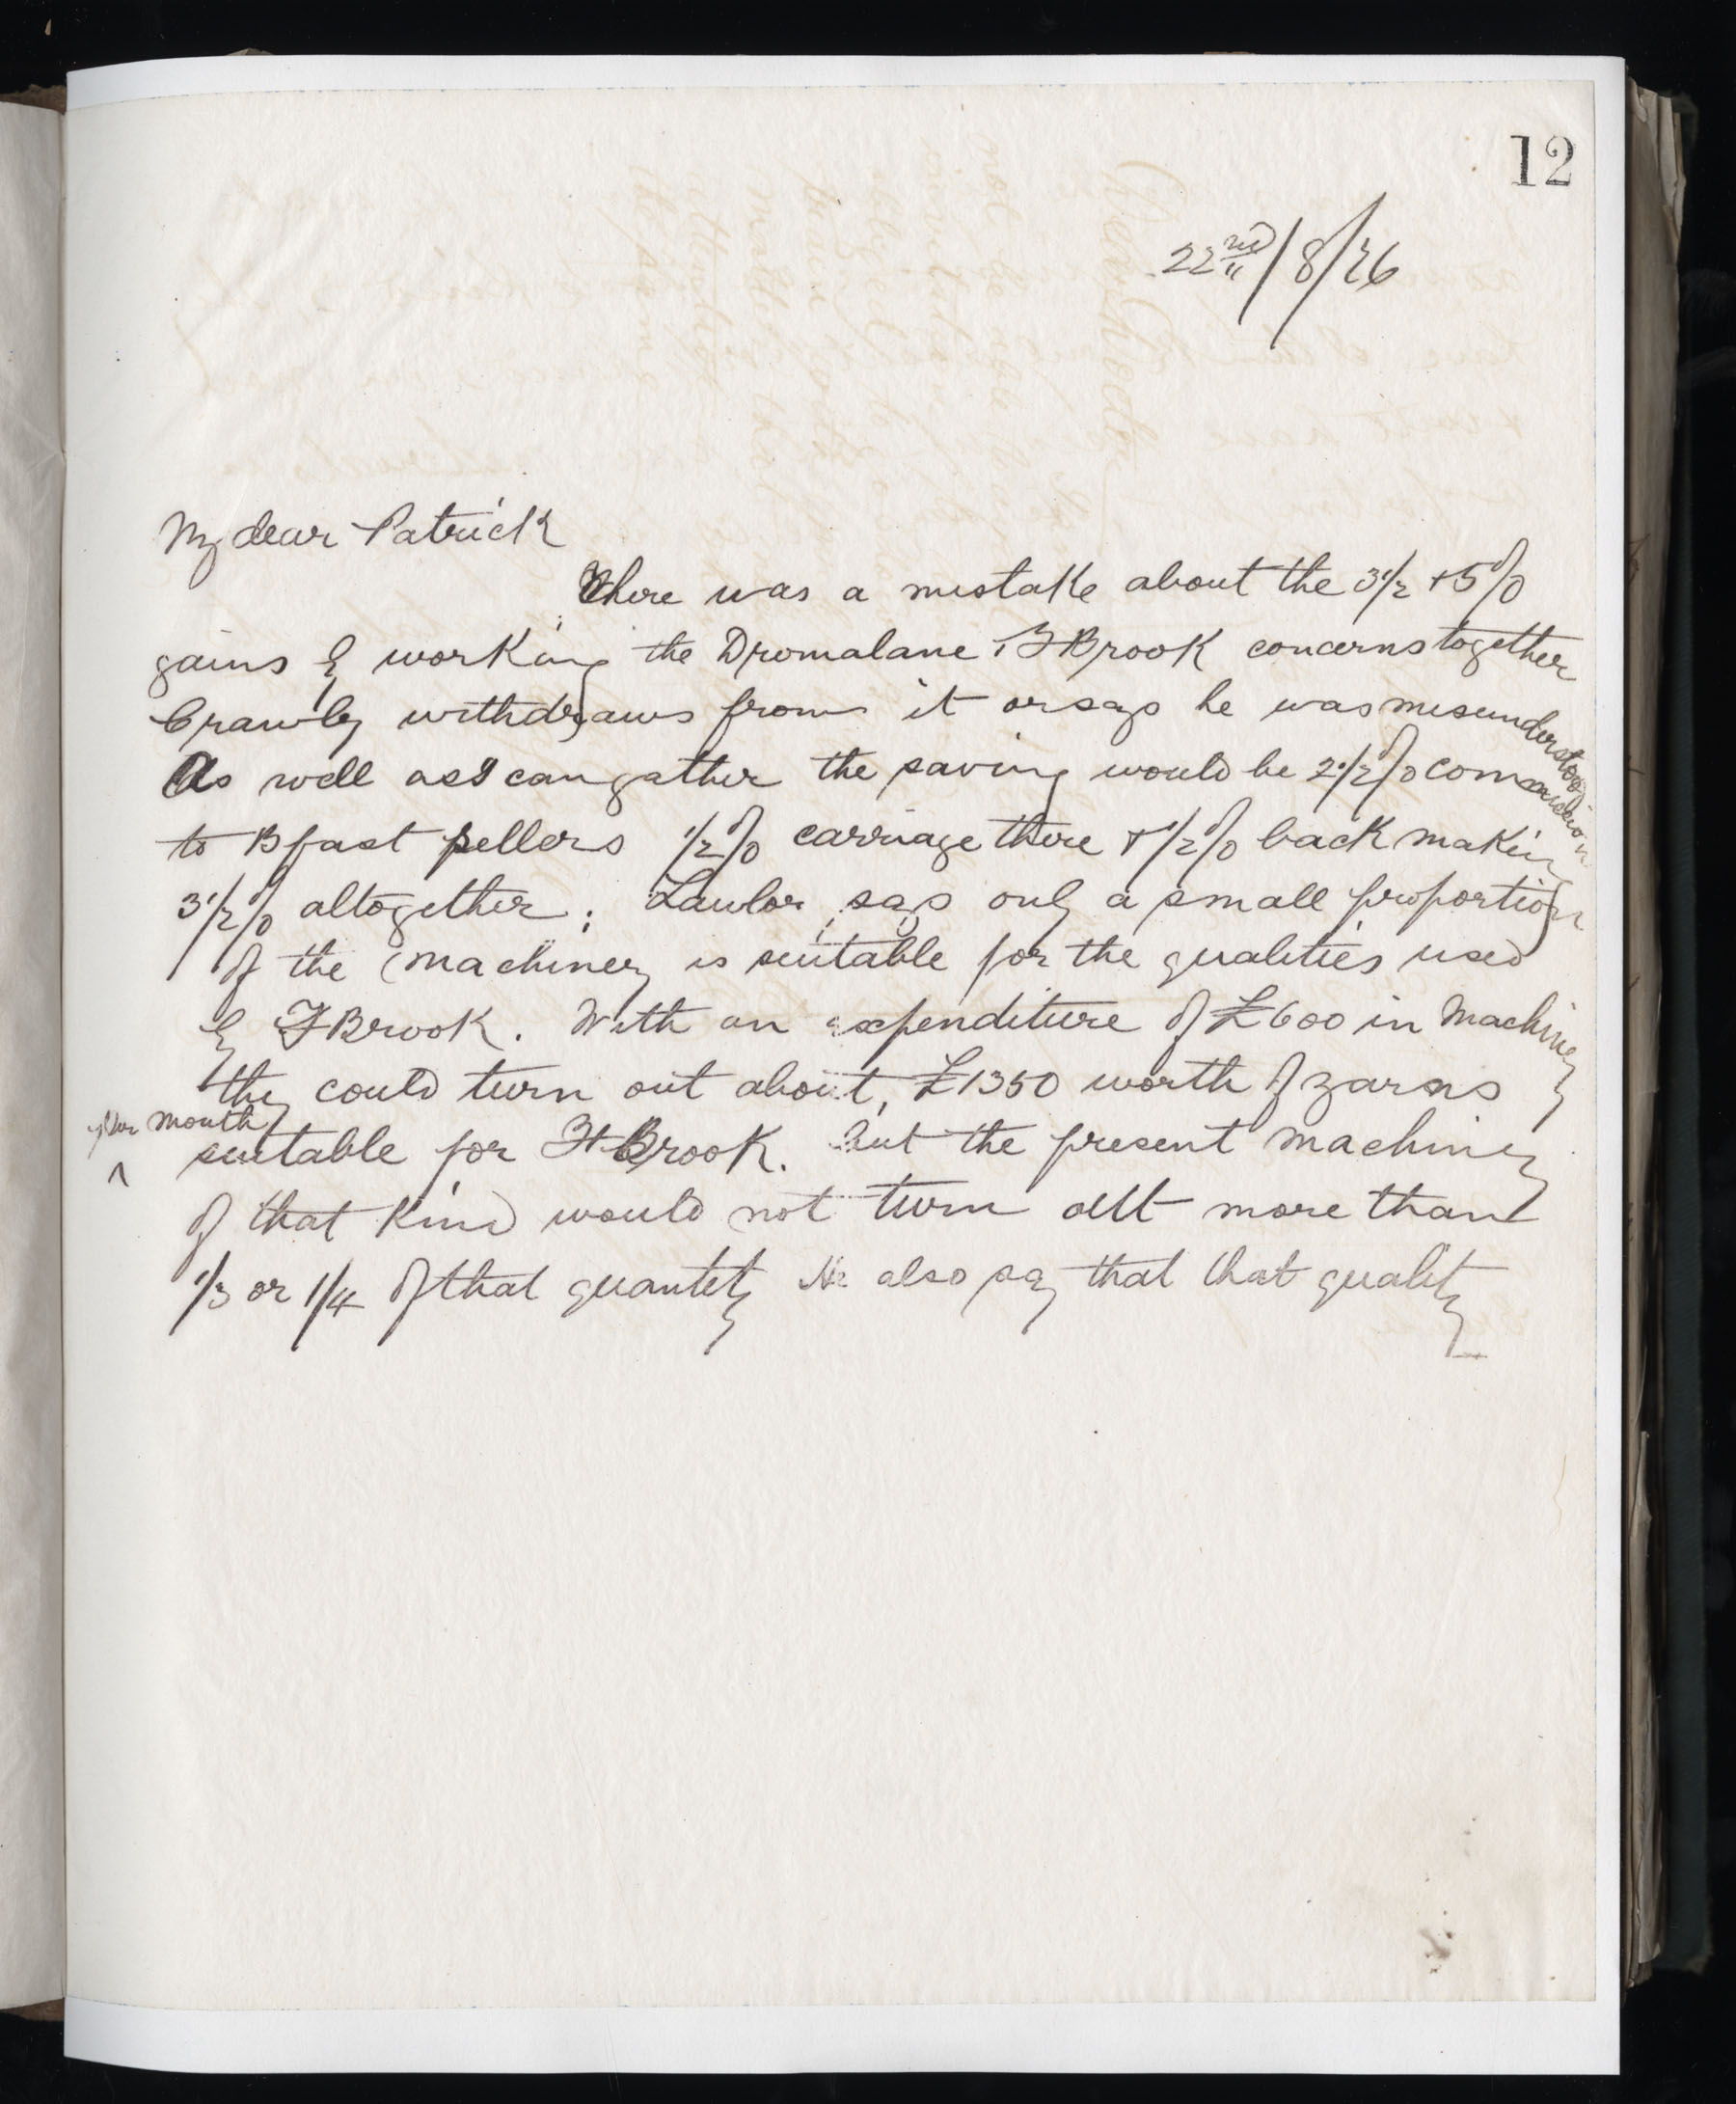 12
22nd/8/76
My dear Patrick
There was a mistake about the 3½ + 5%
gains by working the Dromalane & F Brook concerns together
Crawley withdraws from it or says he was misunderstood
As well as I can gather the saving would be 2½% commission
to Bfast sellers ½% carriage there & ½% back making
3½% altogether. Lawlor says only a small proportion
of the machinery is suitable for the qualities used
by F Brook. With an expenditure of £600 in Machinery
they could turn out about £1350 worth of yarns
per month
^ suitable for F Brook. But the present machinery
of that Kind would not turn out more than
1/3 or 1/4 of that quantity He also say that that quality